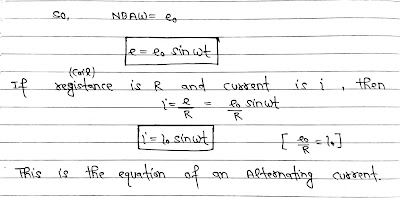 So, NBAW = e₀
e = e₀ sin ωt
(Coil)
If registance is R and current is i, then
i = e/R = e₀/R sin ωt
i = i₀ sin ωt [ e₀/R = i₀ ]
This is the equation of an Alternating current.